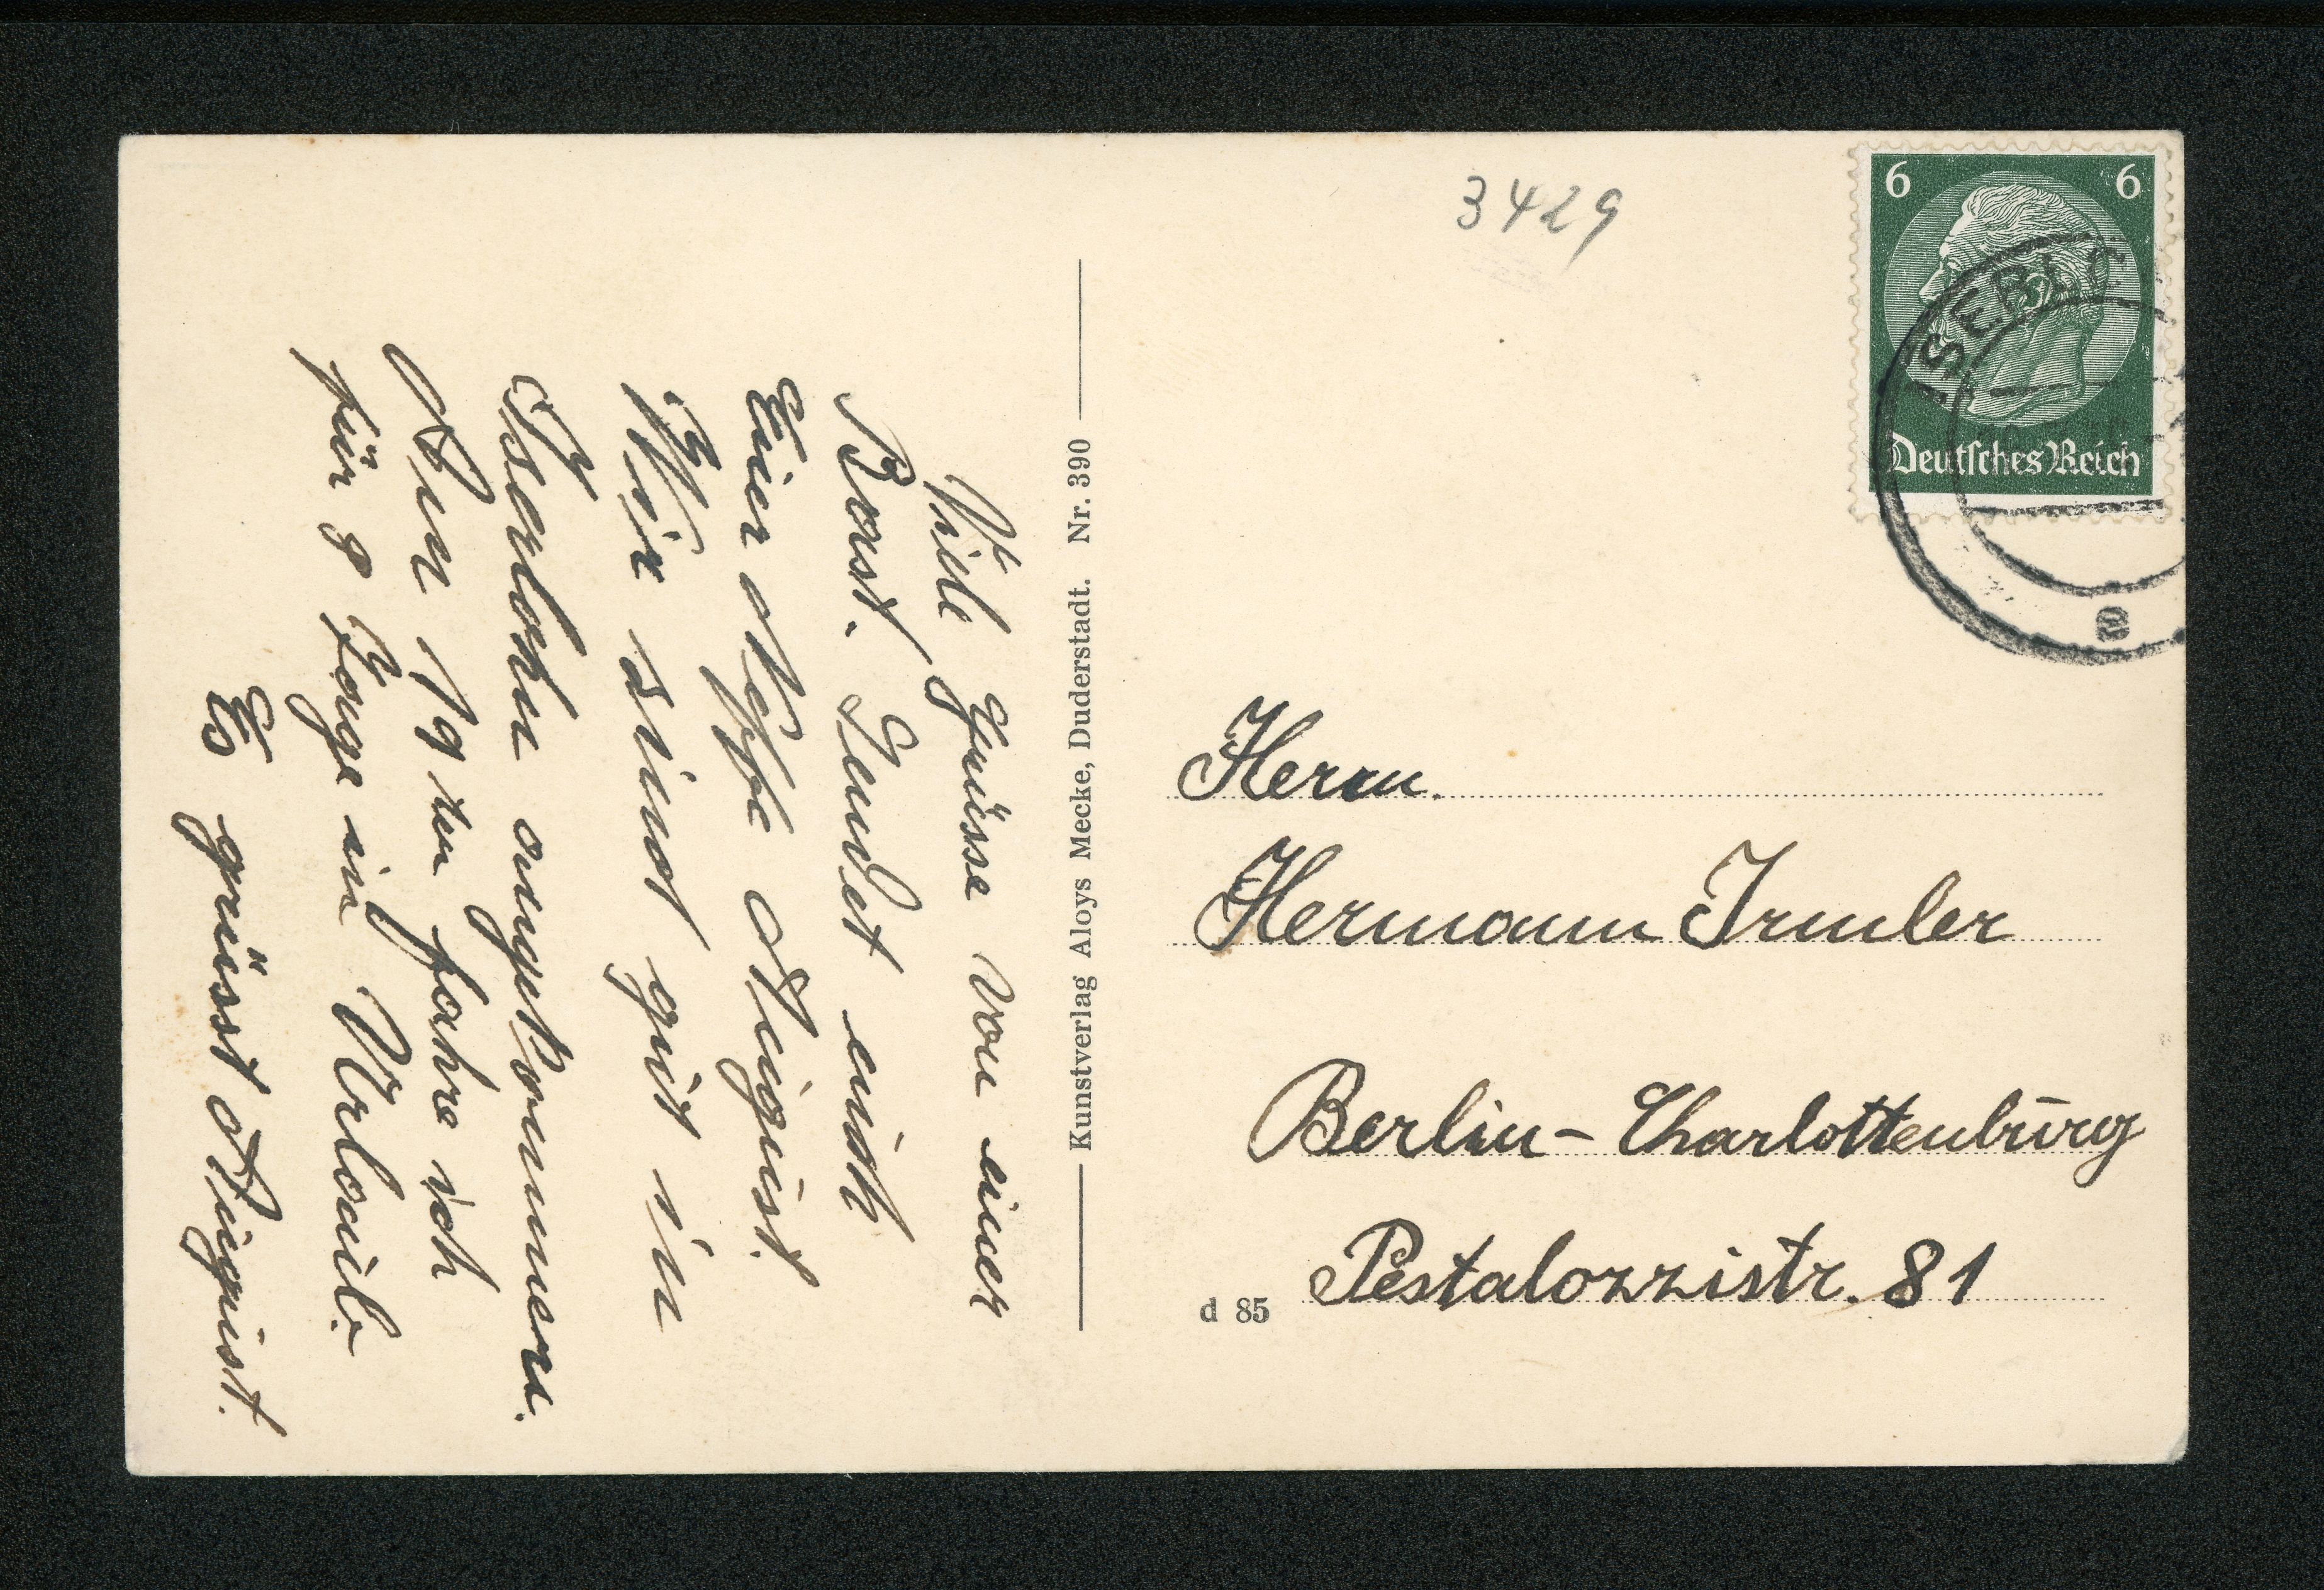 Viele Grüsse von einer
Rast. Sendet euch
Euer Neffe August.
Wir sind gut in
Iserlohn angekommen.
Am 19 ten fahre ich
für 8 Tage in Urlaub.
Es grüsst August.
Kunstverlag Aloys Mecke, Duderstadt. Nr. 390
3429
6 6
Deutsches Reich
ISERLO
a
Herrn.
Hermann Irmler
Berlin - Charlottenburg
Pestalozzistr. 81
d 85